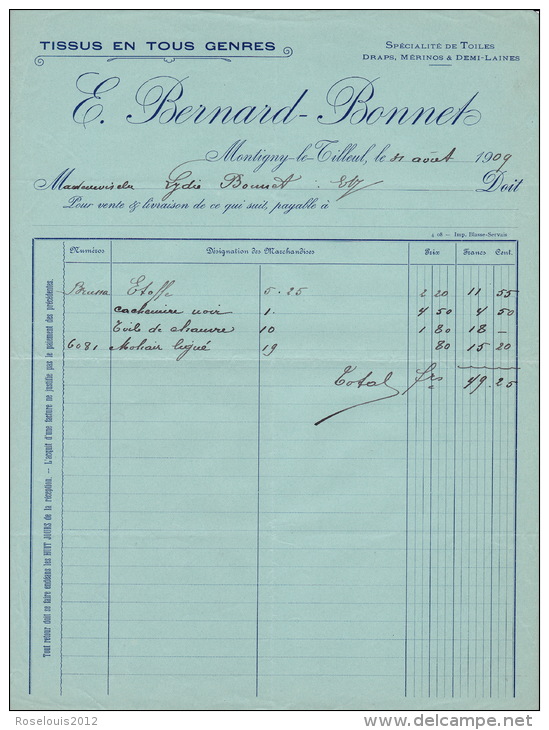 TISSUS EN TOUS GENRES
SPÉCIALITÉ DE TOILES
DRAPS, MÉRINOS & DEMI-LAINES
E. Bernard-Bonnet
Montigny-le-Tilleul, le 31 août 1909
Lydie Bonnet Doit
Pour vente & livraison de ce qui suit, payable à
4 08 — Imp. Blasse-Servais
Numéros Désignation des Marchandises Prix Francs Cent.
Etoffe 5.25 2 20 11 55
cachemire noir 1. 4 50 4 50
Toile de chanvre 10 1 80 18 —
6081 Mohair 19 80 15 20
Total frs 49.25
Tout retour doit se faire endéans les HUIT JOURS de la réception. — L'acquit d'une facture ne justifie pas le paiement des précédentes.
Roselouis2012
delcampe.net